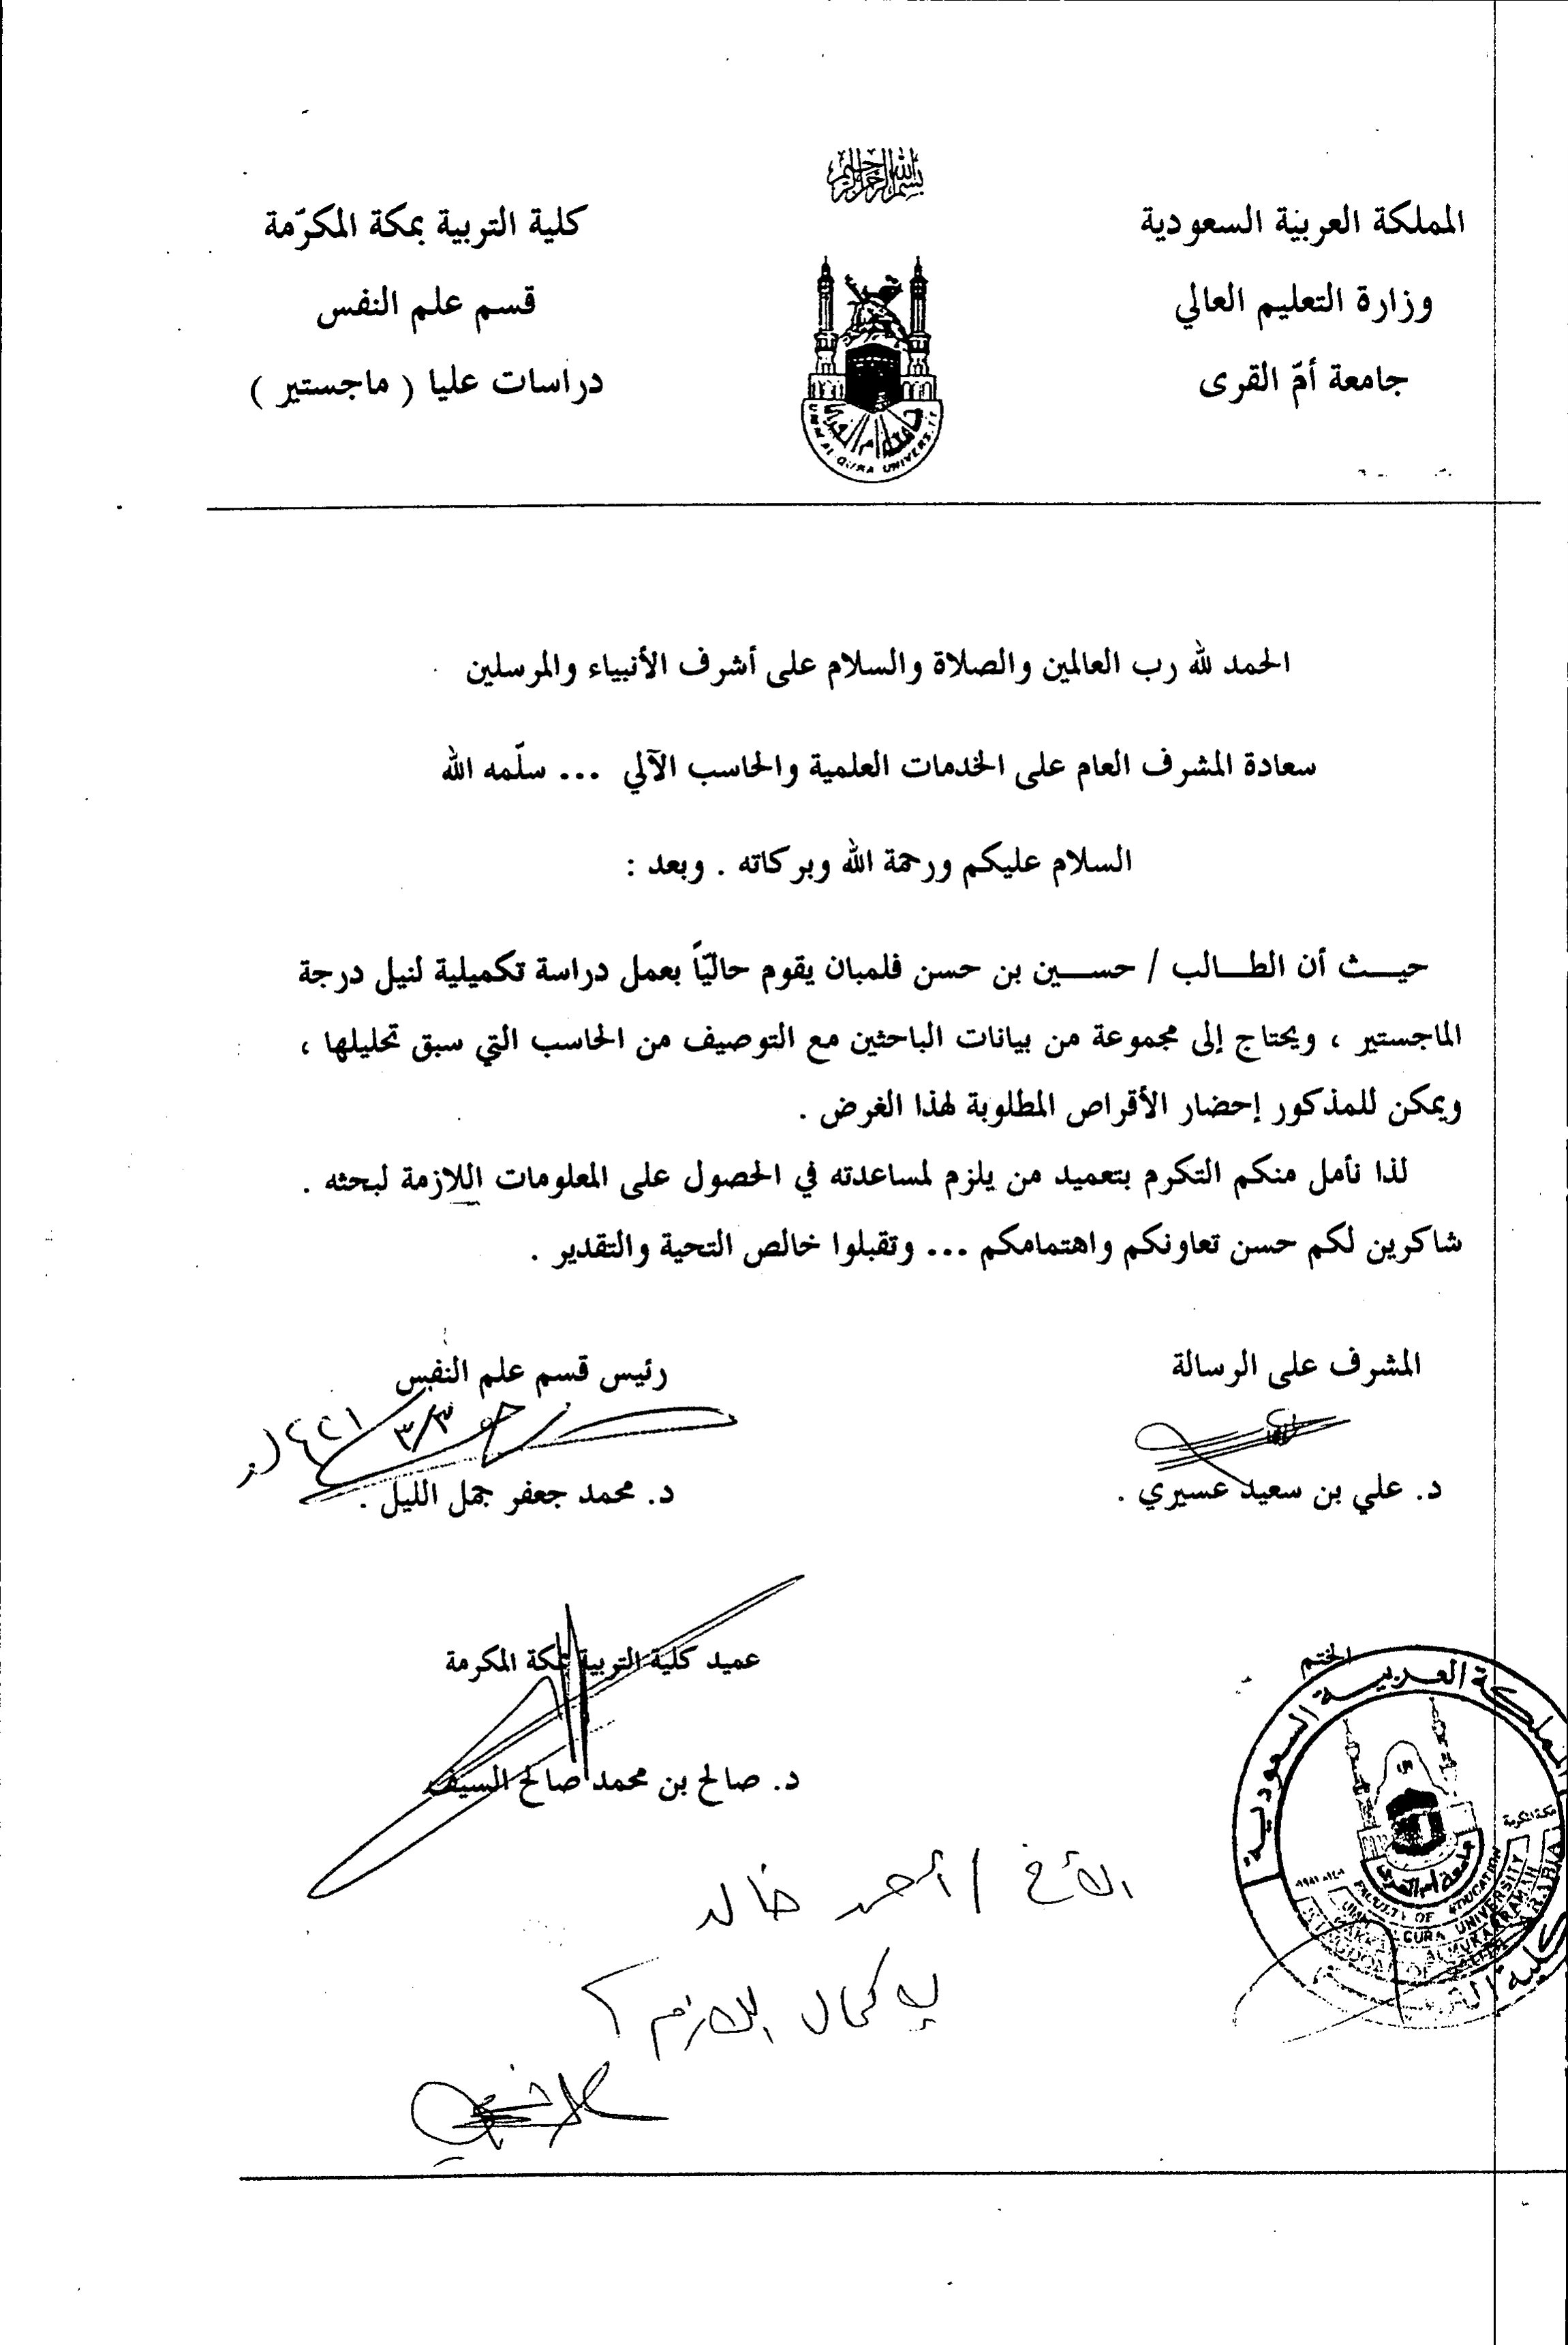 بسم الله الرحمن الرحيم
المملكة العربية السعودية
وزارة التعليم العالي
جامعة أمّ القرى
كلية التربية بمكة المكرّمة
قسم علم النفس
دراسات عليا ( ماجستير )
UMM AL-QURA UNIVERSITY
الحمد لله رب العالمين والصلاة والسلام على أشرف الأنبياء والمرسلين
سعادة المشرف العام على الخدمات العلمية والحاسب الآلي ... سلّمه الله
السلام عليكم ورحمة الله وبركاته . وبعد :
حيث أن الطالب / حسين بن حسن فلمبان يقوم حاليّاً بعمل دراسة تكميلية لنيل درجة
الماجستير ، ويحتاج إلى مجموعة من بيانات الباحثين مع التوصيف من الحاسب التي سبق تحليلها ،
ويمكن للمذكور إحضار الأقراص المطلوبة لهذا الغرض .
لذا نأمل منكم التكرم بتعميد من يلزم لمساعدته في الحصول على المعلومات اللازمة لبحثه .
شاكرين لكم حسن تعاونكم واهتمامكم ... وتقبلوا خالص التحية والتقدير .
المشرف على الرسالة
د. علي بن سعيد عسيري .
رئيس قسم علم النفس
٣/٣
د. محمد جعفر جمل الليل .
عميد كلية التربية بمكة المكرمة
د. صالح بن محمد صالح السيف
الختم
المملكة العربية السعودية
مكة المكرمة
جامعة أم القرى
FACULTY OF EDUCATION
UMM AL QURA UNIVERSITY
الأخ / أحمد خالد
لإكمال اللازم